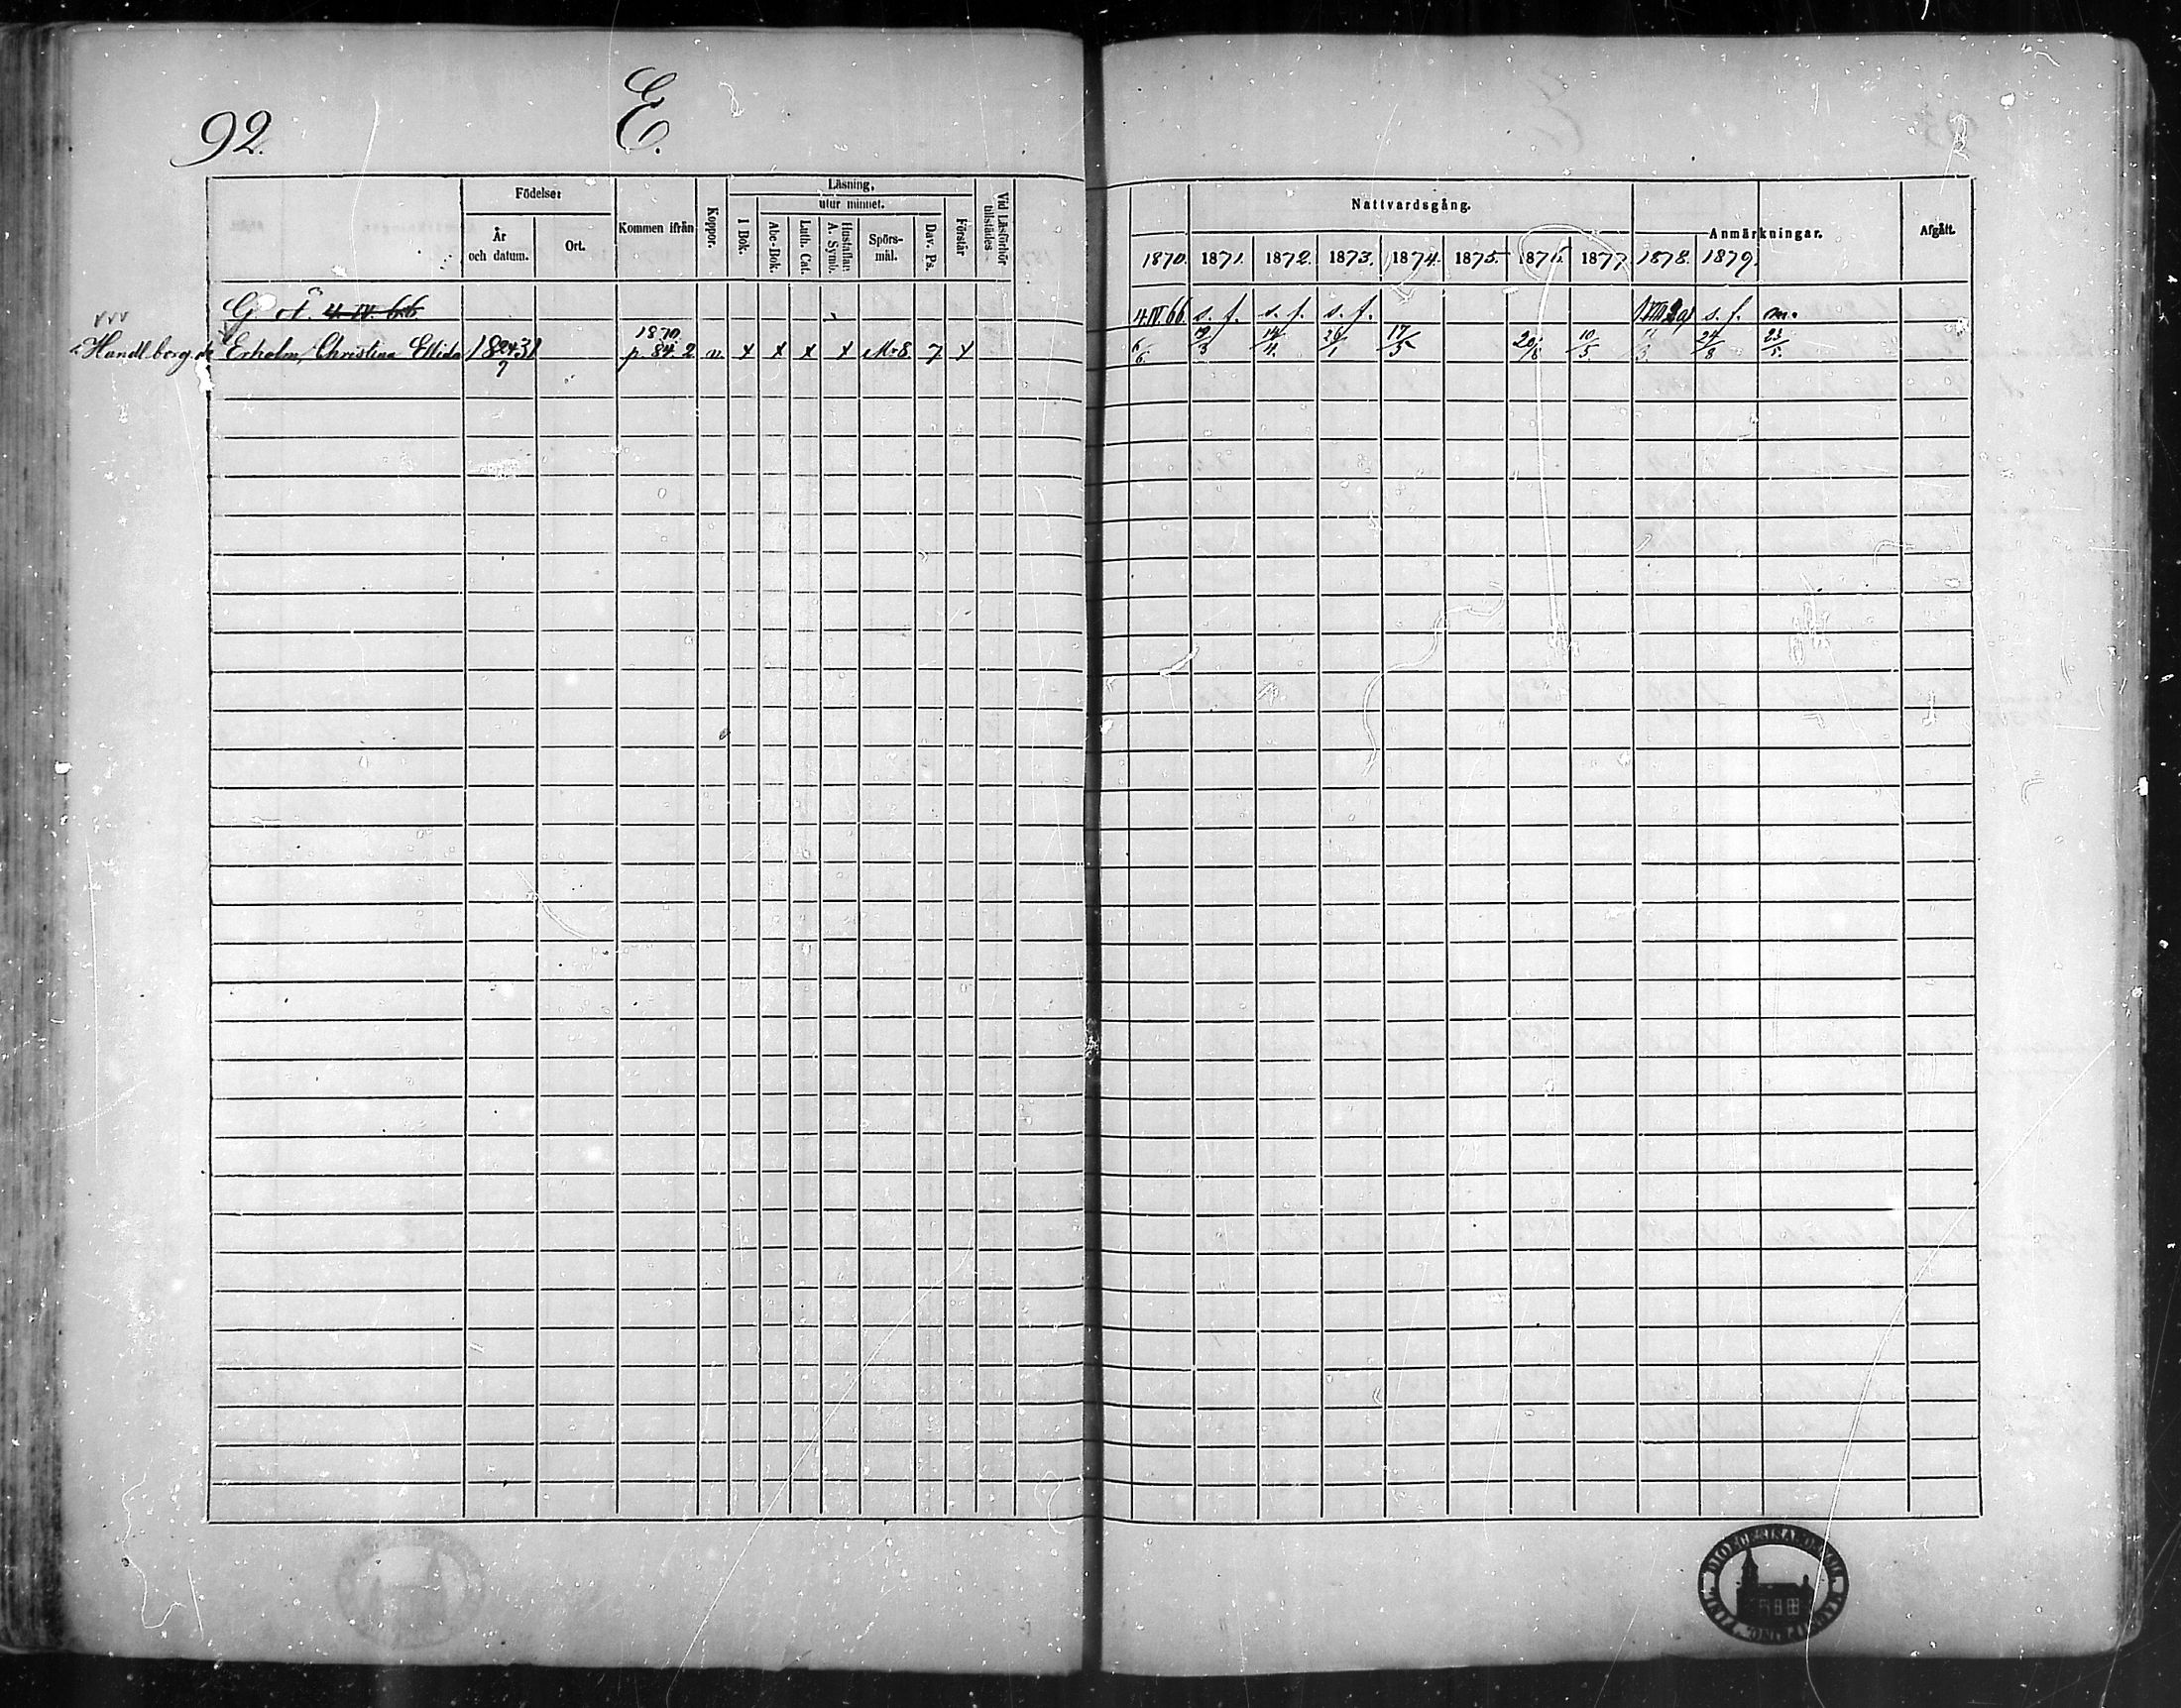 92.
E.
Födelse:
År och datum.
Ort.
Kommen ifrån
Koppor.
Läsning,
I Bok.
utur minnet.
Abc-Bok.
Luth. Cat.
Hustaflan A. Symb.
Spörs-mål.
Dav. Ps.
Förstår
Vid Läsförhör tillstädes
Nattvardsgång.
Anmärkningar.
Afgått.
1870. 1871. 1872. 1873. 1874. 1875. 1876. 1877. 1878. 1879.
G. 4. IV. 66.
4.IV.66 s. f. s. f. s. f. s. f. m.
1870
Erholm, Christina p. 84. 2 v. x x x x 7 x
6/6 19/3 14/11 26/1 17/5 20/8 10/5 11/3 24/8 23/5